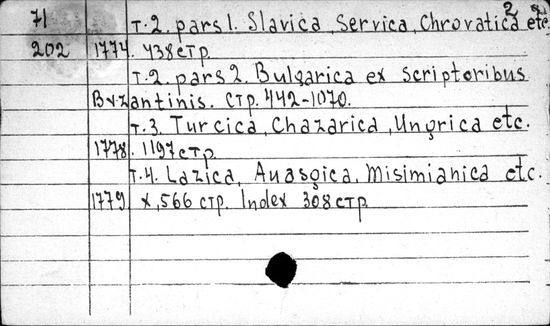 2
71 т.2. pars 1. Slavica, Servica, Chrovatica etc.
202 1774. 438 стр.
т.2. pars 2. Bulgarica ex scriptoribus
Byzantinis. стр. 442-1070.
т.3. Turcica, Chazarica, Ungrica etc.
1778. 1197 стр.
т.4. Lazica, Auasgica, Misimianica etc.
1779. x, 566 стр. Index 308 стр.